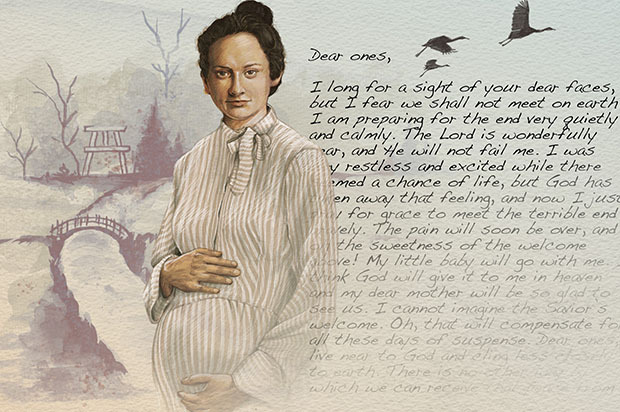 Dear ones,
I long for a sight of your dear faces,
but I fear we shall not meet on earth.
I am preparing for the end very quietly
and calmly. The Lord is wonderfully
ar, and He will not fail me. I was
y restless and excited while there
emed a chance of life, but God has
en away that feeling, and now I just
y for grace to meet the terrible end
vely. The pain will soon be over, and
the sweetness of the welcome
ve! My little baby will go with me.
ink God will give it to me in heaven
and my dear mother will be so glad to
see us. I cannot imagine the Savior's
welcome. Oh, that will compensate for
all these days of suspense. Dear ones,
live near to God and cling less closely
to earth. There is no other way
which we can receive from